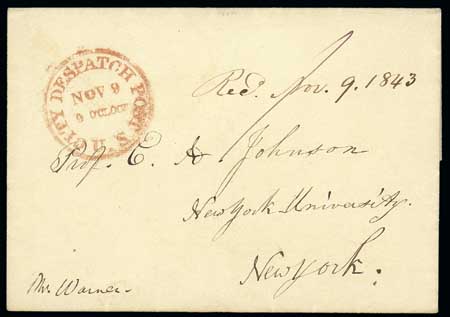 U.S. CITY DESPATCH POST
NOV 9
9 O'CLOCK
Recd. Nov. 9. 1843
Prof. E. A Johnson
New York University.
New York.
Mr Warner